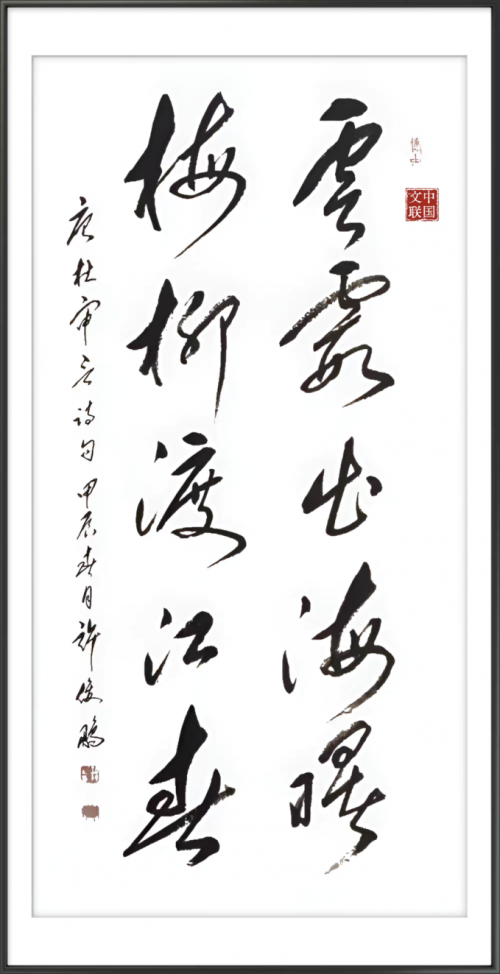 雲霞出海曙
梅柳渡江春
唐杜审言诗句 甲辰春月 許俊鵬
中国文联